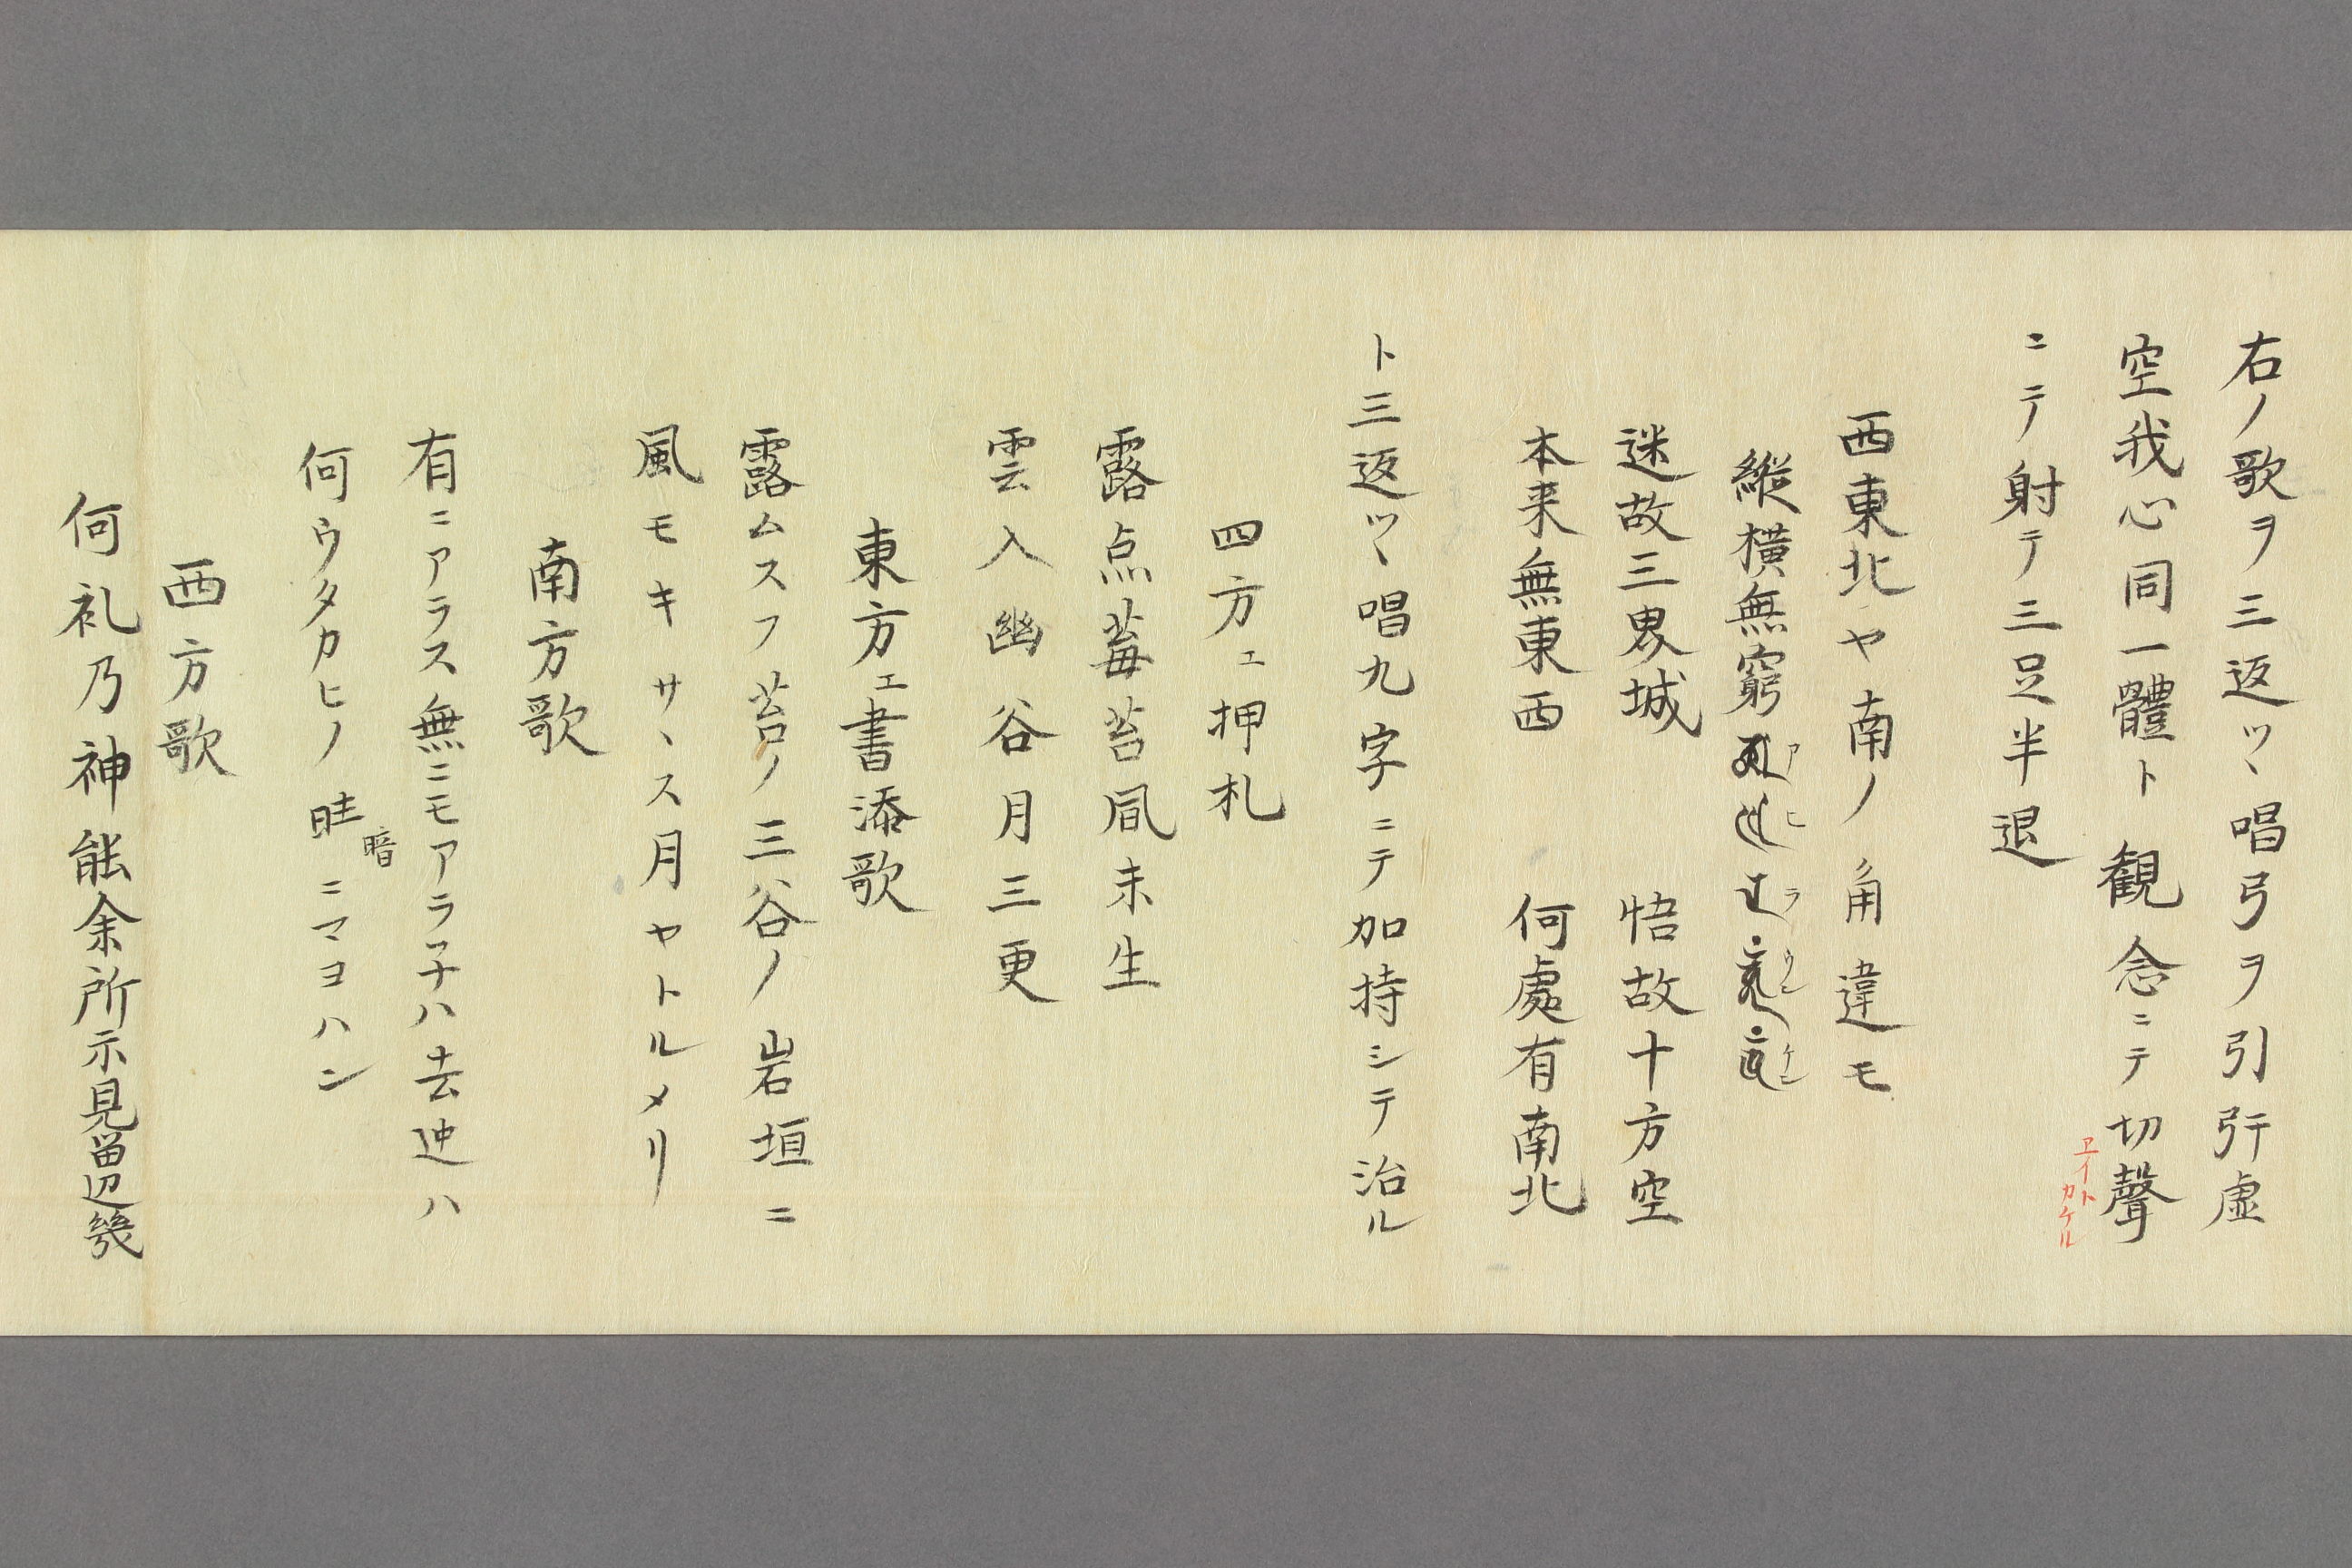 右ノ歌ヲ三返ツヽ唱弓ヲ引引テ虚
空我心同一體ト観念ニテ切聲
ヱイト
カケル
ニテ射テ三足半退
西東北ヤ南ノ角違モ
縱横無窮
アヒラウンケン
迷故三界城 悟故十方空
本来無東西 何處有南北
ト三返ツヽ唱九字ニテ加持シテ治ル
四方ェ押札
露点苺苔凬未生
雲入幽谷月三更
東方ェ書添歌
露ムスフ苔ノ三谷ノ岩垣ニ
風モキサヽス月ヤトルメリ
南方歌
有ニアラス無ニモアラ子ハ去迚ハ
何ウタカヒノ
暗
ニマヨハン
西方歌
何礼乃神能余所示見留辺幾